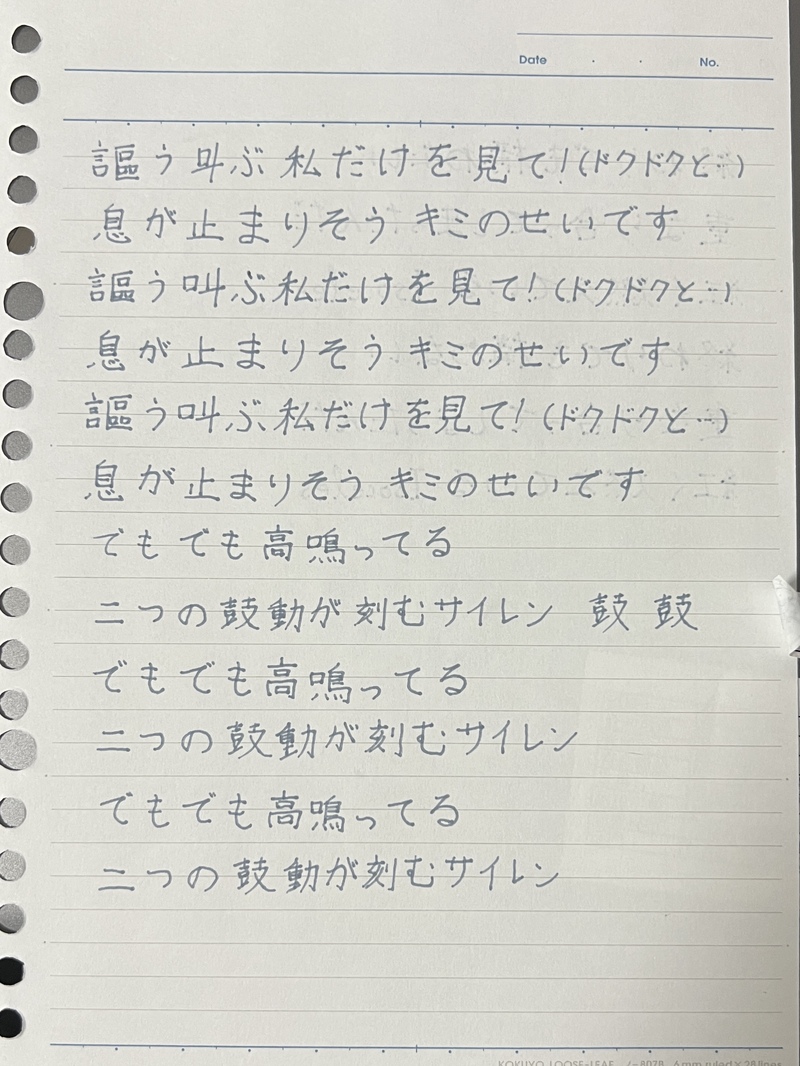 Date ・ ・ No.
謳う叫ぶ 私だけを 見て!(ドクドクと…)
息が止まりそう キミのせいです
謳う叫ぶ私だけを見て!(ドクドクと…)
息が止まりそう キミのせいです
謳う叫ぶ私だけを見て!(ドクドクと…)
息が止まりそう キミのせいです
でもでも高鳴ってる
二つの鼓動が刻むサイレン 鼓 鼓
でもでも高鳴ってる
二つの鼓動が刻むサイレン
でもでも高鳴ってる
二つの鼓動が刻むサイレン
KOKUYO LOOSE-LEAF ノ-807B 6mm ruled×28 lines